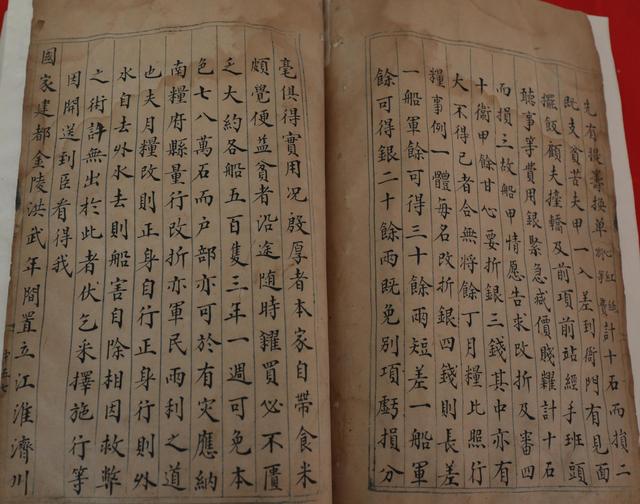 先有提籌換單計十石而損二
既支貧苦夫甲一入差到衙門有見面
擺飯顧夫擡轎及前項前站經手班頭
聽事等費用銀緊急減價賤糶計十石
而損三故船甲情愿告求改折及審四
十衛甲餘甘心要折銀三錢其中亦有
大不得已者合無將餘丁月糧比照行
糧事例一體每名改折銀四錢則長差
一船軍餘可得三十餘兩短差一船軍
餘可得銀二十餘兩既免別項虧損分
毫俱得實用況殷厚者本家自帶食米
頗覺便益貧者沿途隨時糴買必不匱
乏大約各船五百隻三年一週可免本
色七八萬石而戶部亦可於有灾應納
南糧府縣量行改折亦軍民兩利之道
也夫月糧改則正身自行正身行則外
水自去外水去則船害自除相因救弊
之術計無出於此者伏乞采擇施行等
因開送到臣看得我
國家建都金陵洪武年間置立江淮濟川